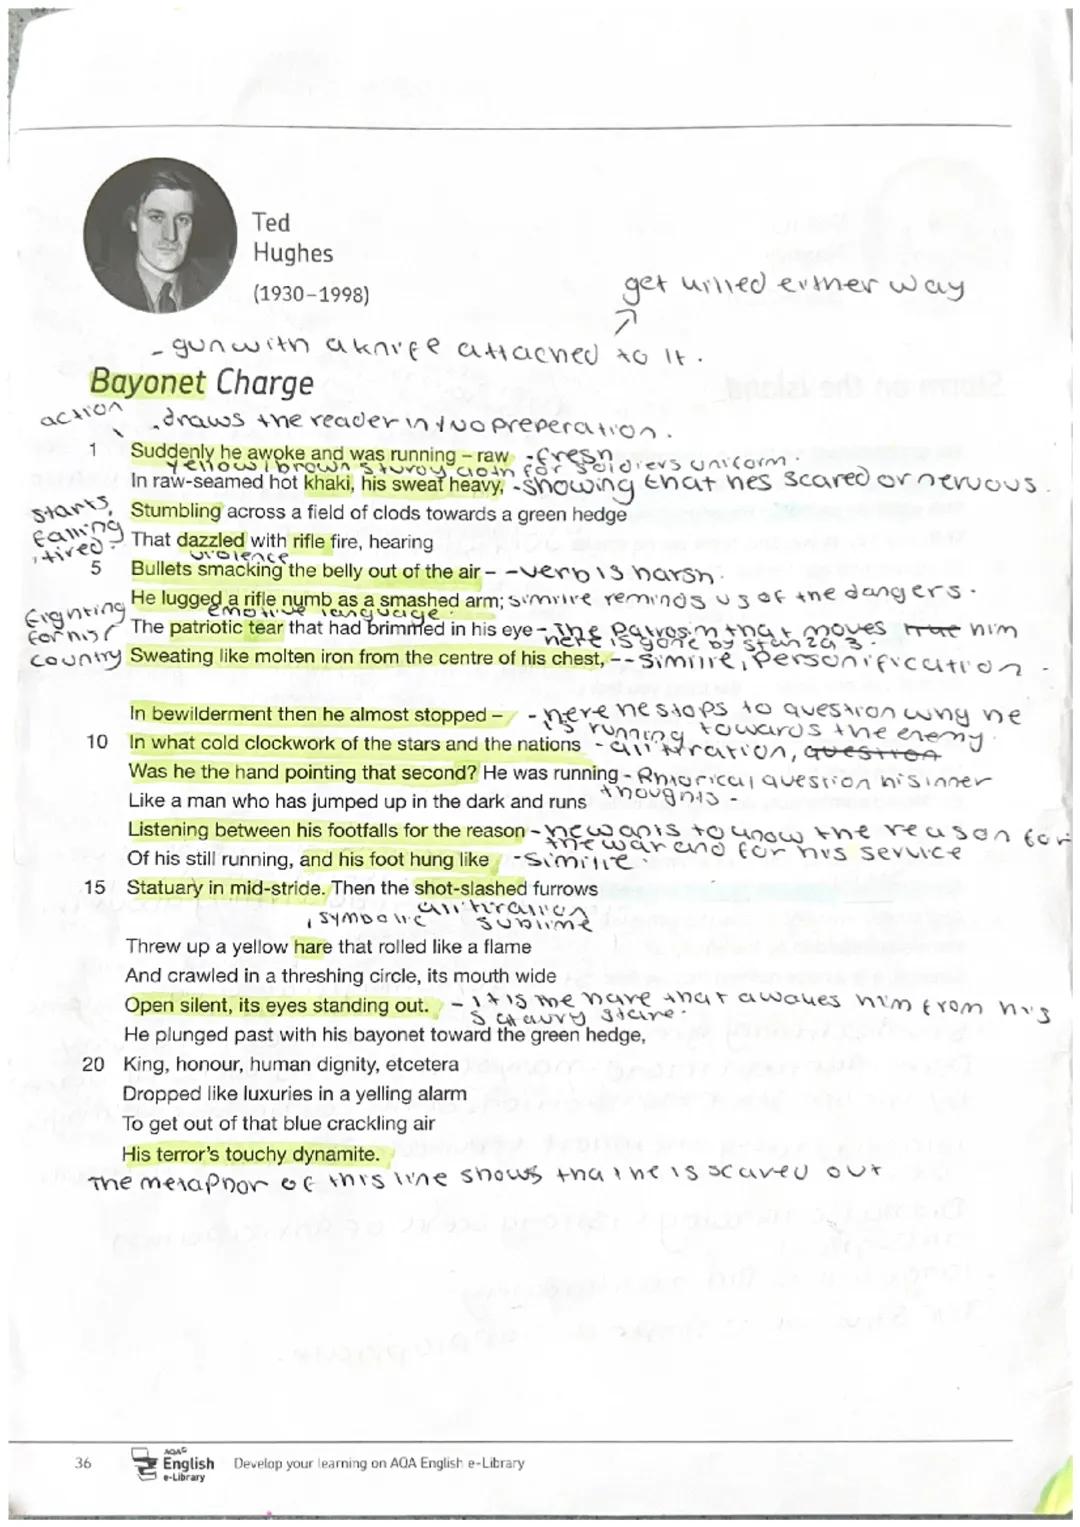 Ted
Hughes
(1930–1998)
get killed either way
- gun with a knife attached to it.
Bayonet Charge
action
. draws the reader in / no preperation.
1 Suddenly he awoke and was running – raw - fresn
yellow / brown sturdy cloth for soldiers uniform.
In raw-seamed hot khaki, his sweat heavy, - showing that hes scared or nervous.
starts falling, tired.
Stumbling across a field of clods towards a green hedge
That dazzled with rifle fire, hearing
violence
5 Bullets smacking the belly out of the air – - verb is harsh.
He lugged a rifle numb as a smashed arm; similie reminds us of the dangers.
emotive language.
Fighting for his country
The patriotic tear that had brimmed in his eye - The Patrosim that moves him
here is gone by stanza 3.
Sweating like molten iron from the centre of his chest, – - similie, Personification.
In bewilderment then he almost stopped – - here he stops to question why he
is running towards the enemy.
10 In what cold clockwork of the stars and the nations - allitration, question
Was he the hand pointing that second? He was running - Rhtorical question his inner
thoughts -
Like a man who has jumped up in the dark and runs
Listening between his footfalls for the reason - he wants to know the reason for
the war and for his service
Of his still running, and his foot hung like - similie
15 Statuary in mid-stride. Then the shot-slashed furrows
allitration
, symbolic sublime
Threw up a yellow hare that rolled like a flame
And crawled in a threshing circle, its mouth wide
Open silent, its eyes standing out. - it is the hare that awakes him from his
statury stare.
He plunged past with his bayonet toward the green hedge,
20 King, honour, human dignity, etcetera
Dropped like luxuries in a yelling alarm
To get out of that blue crackling air
His terror's touchy dynamite.
The metaphor of this line shows that he is scared out
36 AQA English e-Library Develop your learning on AQA English e-Library